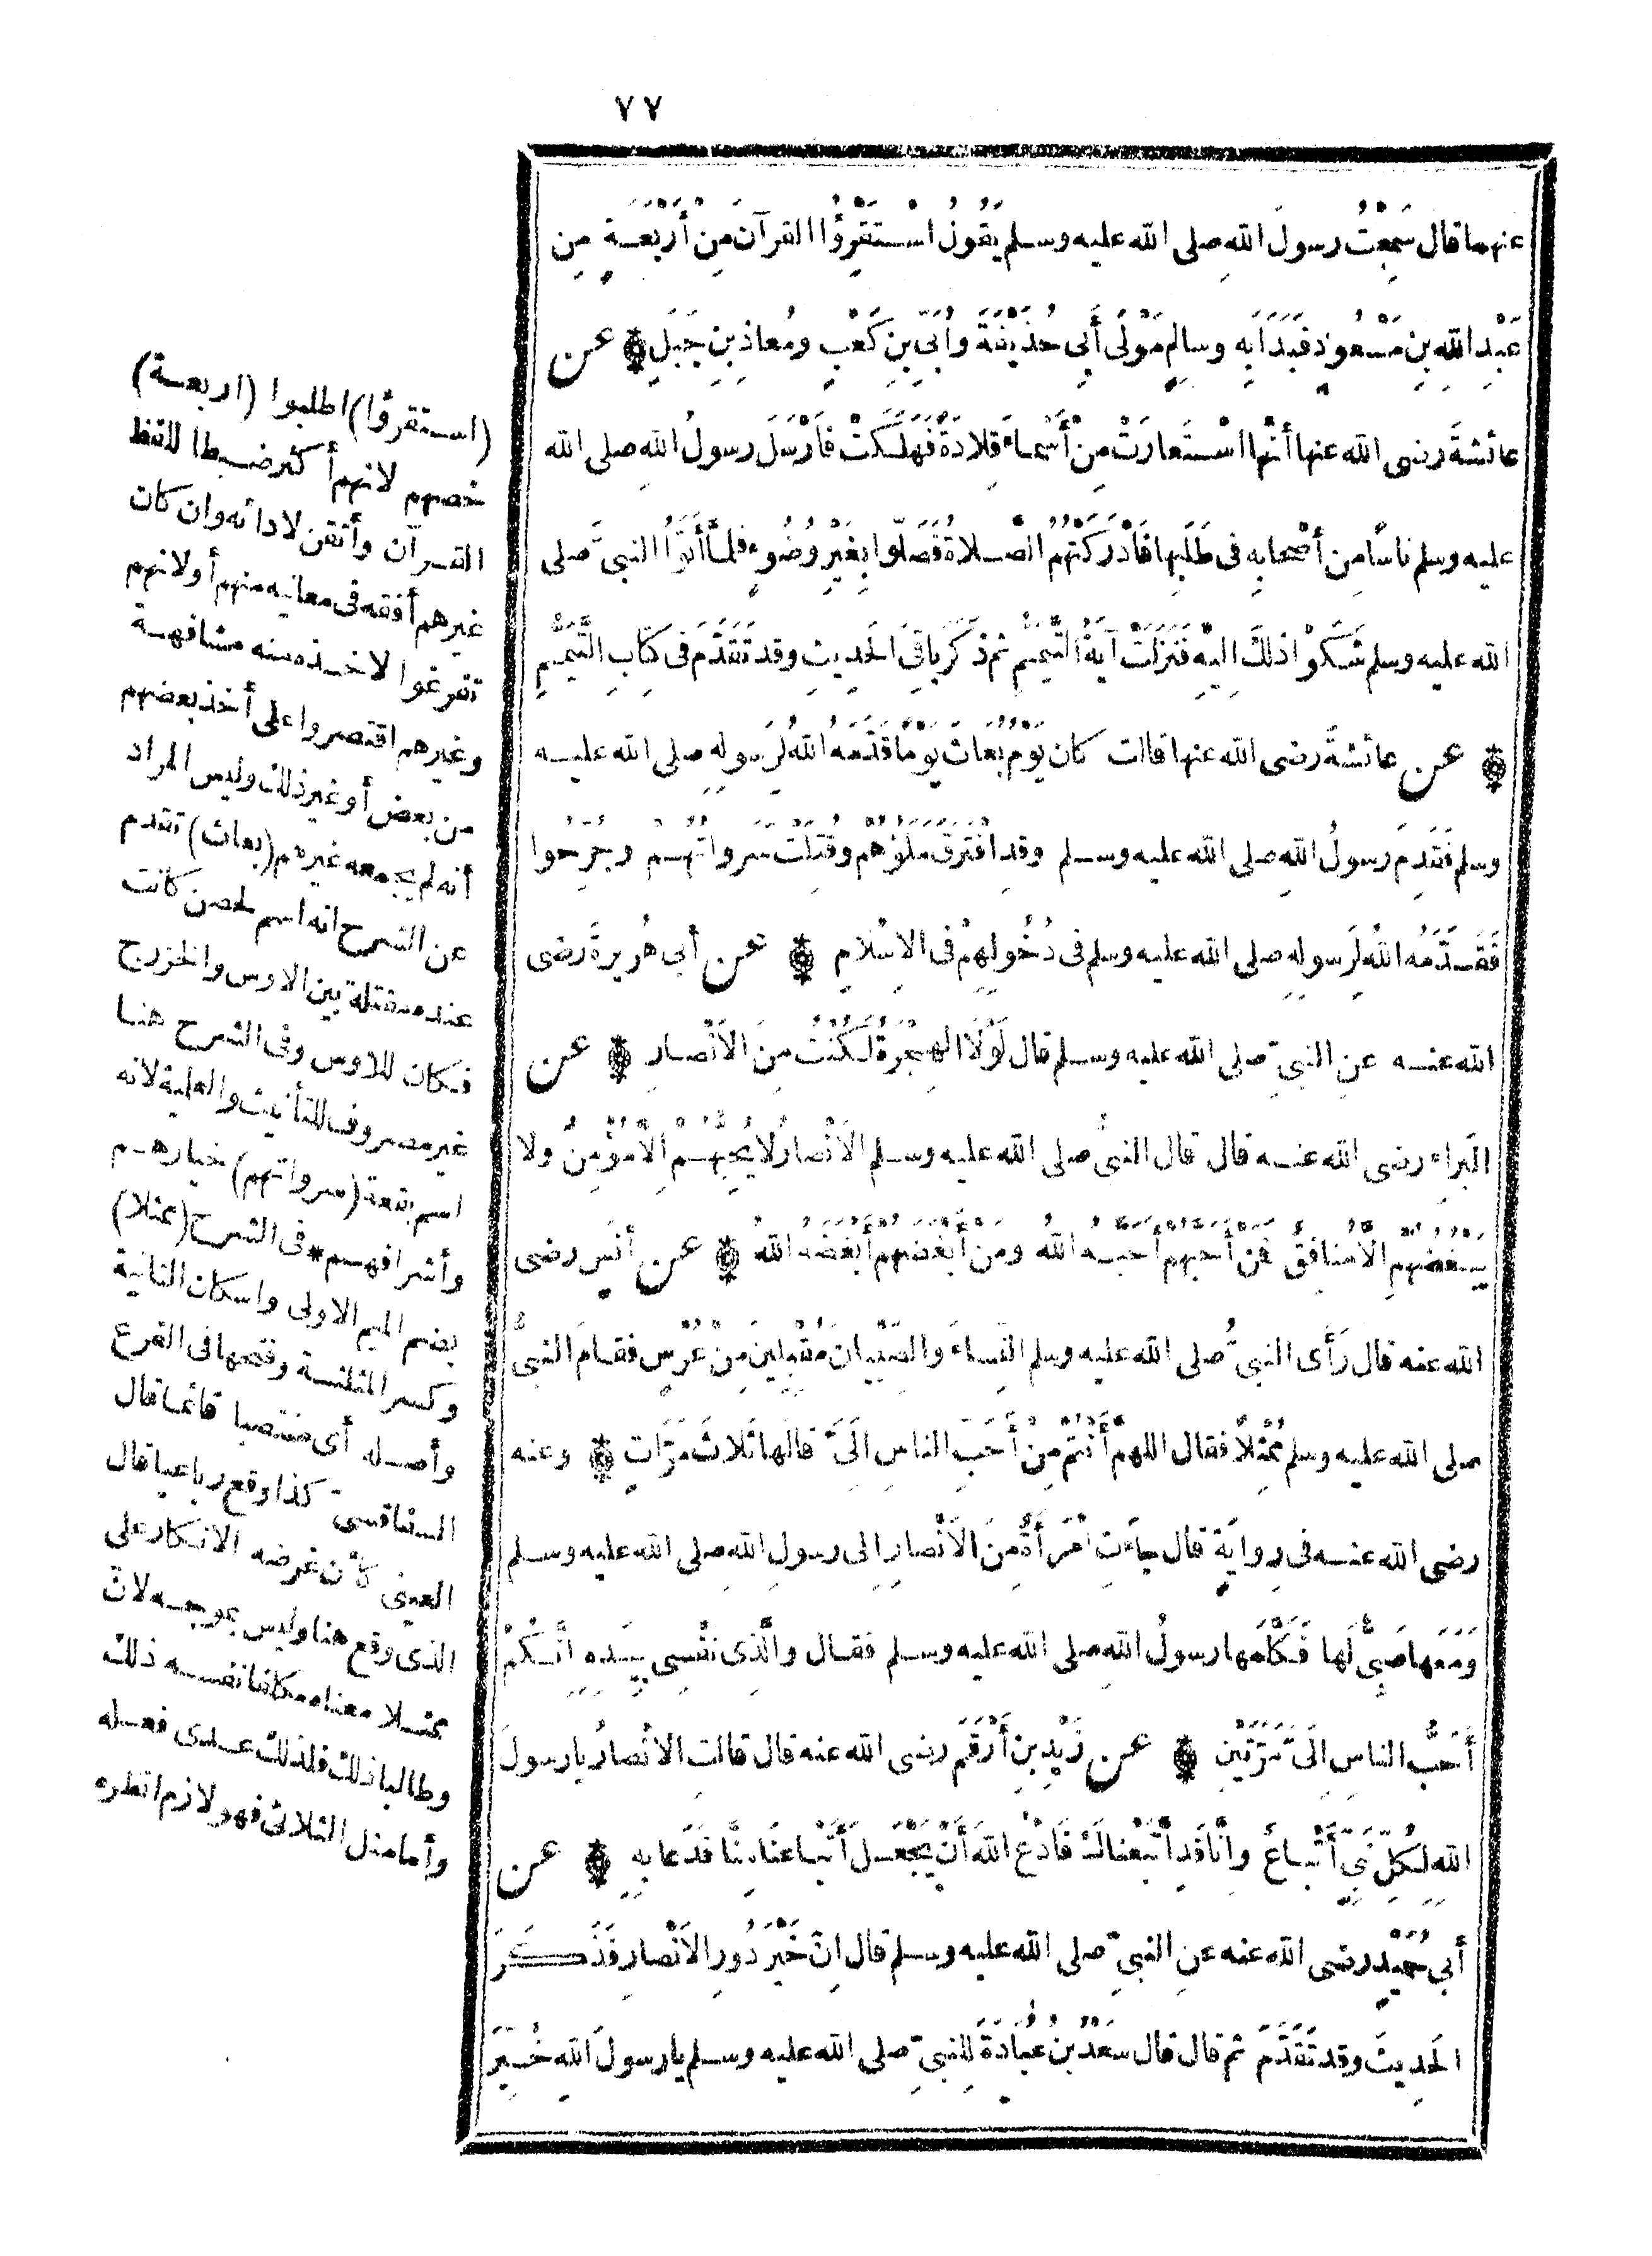 ٧٧
عنهما قال سَمِعْتُ رسولَ اللهِ صلى الله عليه وسلم يَقُولُ اسْتَقْرِؤُا القرآنَ مِنْ أَرْبَعَةٍ مِن
عَبْدِ اللهِ بنِ مَسْعُودٍ فَبَدَأَ بِهِ وسالِمٍ مَوْلَى أَبِى حُذَيْفَةَ وأُبَىِّ بنِ كَعْبٍ ومُعاذِ بنِ جَبَلٍ ۞ عن
عائشةَ رضى الله عنها أَنَّها اسْتَعارَتْ مِنْ أَسْماءَ قِلادَةً فَهَلَكَتْ فَأَرْسَلَ رسولُ اللهِ صلى الله
عليه وسلم ناسًا مِن أَصْحابِهِ فى طَلَبِها فَأَدْرَكَتْهُمُ الصلاةُ فَصَلَّوا بِغَيْرِ وُضُوءٍ فلمَّا أَتَوُا النبىَّ صلى
الله عليه وسلم شَكَوْا ذلكَ إِلَيْهِ فَنَزَلَتْ آيَةُ التَّيَمُّمِ ثم ذَكَرَ باقِىَ الحَدِيثِ وقد تَقَدَّمَ فى كِتابِ التَّيَمُّمِ
۞ عن عائشةَ رضى الله عنها قالت كان يَوْمُ بُعَاثَ يَوْمًا قَدَّمَهُ اللهُ لِرَسولِهِ صلى الله عليه
وسلم فَقَدِمَ رسولُ اللهِ صلى الله عليه وسلم وقدِ افْتَرَقَ مَلَؤُهُم وقُتِلَتْ سَرَواتُهُمْ وجُرِّحُوا
فَقَدَّمَهُ اللهُ لِرَسولِهِ صلى الله عليه وسلم فى دُخُولِهِمْ فى الاِسْلامِ ۞ عن أبى هُريرةَ رضى
الله عنه عنِ النبىِّ صلى الله عليه وسلم قال لَوْلَا الهِجْرَةُ لَكُنْتُ مِنَ الأَنْصارِ ۞ عن
البَراءِ رضى الله عنه قال قال النبىُّ صلى الله عليه وسلم الأَنْصارُ لا يُحِبُّهُمْ إِلَّا مُؤْمِنٌ ولا
يُبْغِضُهُمْ إِلَّا مُنافِقٌ فَمَنْ أَحَبَّهُمْ أَحَبَّهُ اللهُ ومَنْ أَبْغَضَهُم أَبْغَضَهُ اللهُ ۞ عن أنَسٍ رضى
الله عنه قال رَأَى النبىُّ صلى الله عليه وسلم النِّساءَ والصِّبْيانَ مُقْبِلِينَ مِنْ عُرُسٍ فقامَ النبىُّ
صلى الله عليه وسلم مُمْثِلًا فقال اللهمَّ أَنْتُمْ مِنْ أَحَبِّ الناسِ إِلَىَّ قالَها ثَلاثَ مَرَّاتٍ ۞ وعنه
رضى الله عنه فى رِوايَةٍ قال جاءَتِ امْرَأَةٌ مِنَ الأَنْصارِ إِلى رسولِ اللهِ صلى الله عليه وسلم
وَمَعَها صَبِىٌّ لَها فَكَلَّمَها رسولُ اللهِ صلى الله عليه وسلم فقال والَّذِى نَفْسِى بِيَدِهِ إِنَّكُمْ
أَحَبُّ الناسِ إِلَىَّ مَرَّتَيْنِ ۞ عن زَيْدِ بنِ أَرْقَمَ رضى الله عنه قال قالتِ الأَنْصارُ يا رسولَ
اللهِ لِكُلِّ نَبِىٍّ أَتْباعٌ وإِنَّا قَدِ اتَّبَعْناكَ فَادْعُ اللهَ أَنْ يَجْعَلَ أَتْباعَنا مِنَّا فَدَعا بِهِ ۞ عن
أبى حُمَيْدٍ رضى الله عنه عنِ النبىِّ صلى الله عليه وسلم قال إِنَّ خَيْرَ دُورِ الأَنْصارِ فَذَكَرَ
الحَدِيثَ وقد تَقَدَّمَ ثم قال قال سَعْدُ بنُ عُبَادَةَ لِلنبىِّ صلى الله عليه وسلم يا رسولَ اللهِ خُيِّرَ
(استقرؤا) اطلبوا (اربعة)
خصهم لانهم أكثر ضبطا للفظ
القرآن وأتقن لادائه وان كان
غيرهم أفقه فى معانيه منهم أو لانهم
تفرغوا لاخذه منه مشافهة
وغيرهم اقتصروا على أخذ بعضهم
من بعض أو غير ذلك وليس المراد
أنه لم يجمعه غيرهم (بعاث) تقدم
عن الشرح انه اسم لحصن كانت
عنده مقتلة بين الاوس والخزرج
فكان للاوس وفى الشرح هنا
غير مصروف للتأنيث والعلمية لانه
اسم بقعة (سرواتهم) خيارهم
وأشرافهم * فى الشرح (ممثلا)
بضم الميم الاولى واسكان الثانية
وكسر المثلثة وفتحها فى الفرع
وأصله أى منتصبا قائما قال
السفاقسىّ كذا وقع رباعيا قال
العينى كأن غرضه الانكار على
الذى وقع هنا وليس بموجه لانّ
ممثلا معناه مكلفا نفسه ذلك
وطالبا ذلك فلذلك عدى فعله
وأما مثل الثلاثى فهو لازم انظره